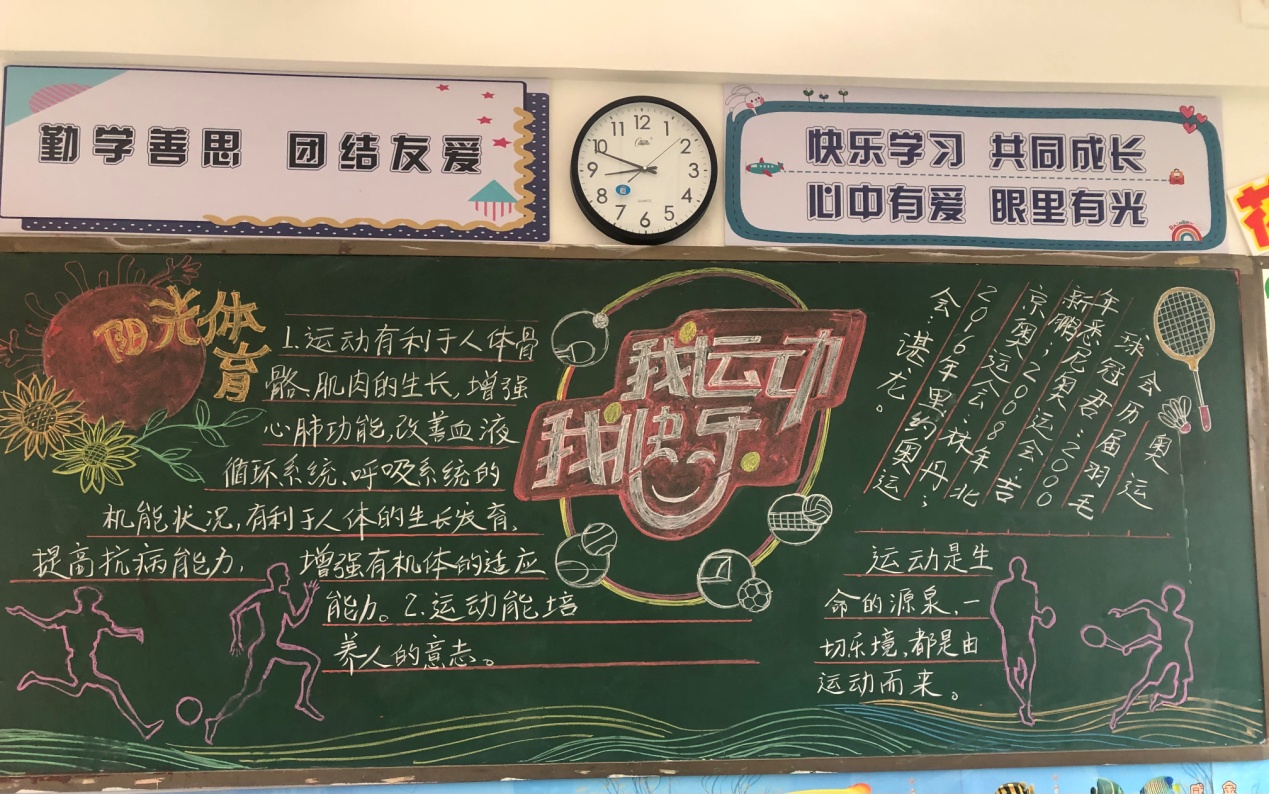 勤学善思 团结友爱
快乐学习 共同成长
心中有爱 眼里有光
12
11
1
10
2
9
3
8
4
7
5
6
QUARTZ
阳光体育
1.运动有利于人体骨
骼、肌肉的生长,增强
心肺功能,改善血液
循环系统、呼吸系统的
机能状况,有利于人体的生长发育,
提高抗病能力, 增强有机体的适应
能力。2.运动能培
养人的意志。
我运动
我快乐
奥运
会历届羽毛
球冠君:2000
年悉尼奥运会:吉
新鹏;2008年北
京奥运会:林丹;
2016年里约奥运
会:谌龙。
运动是生
命的源泉,一
切乐境,都是由
运动而来。